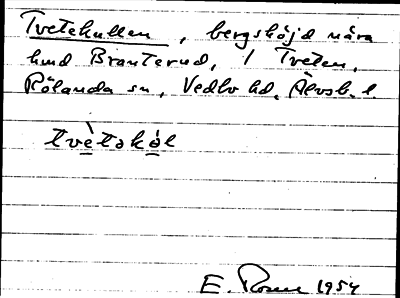 Tvetekullen, bergshöjd nära
hmd Branterud, 1 Tveten,
Rölanda sn, Vedbo hd, Älvsb. l
tvètəkəl
E. 1954